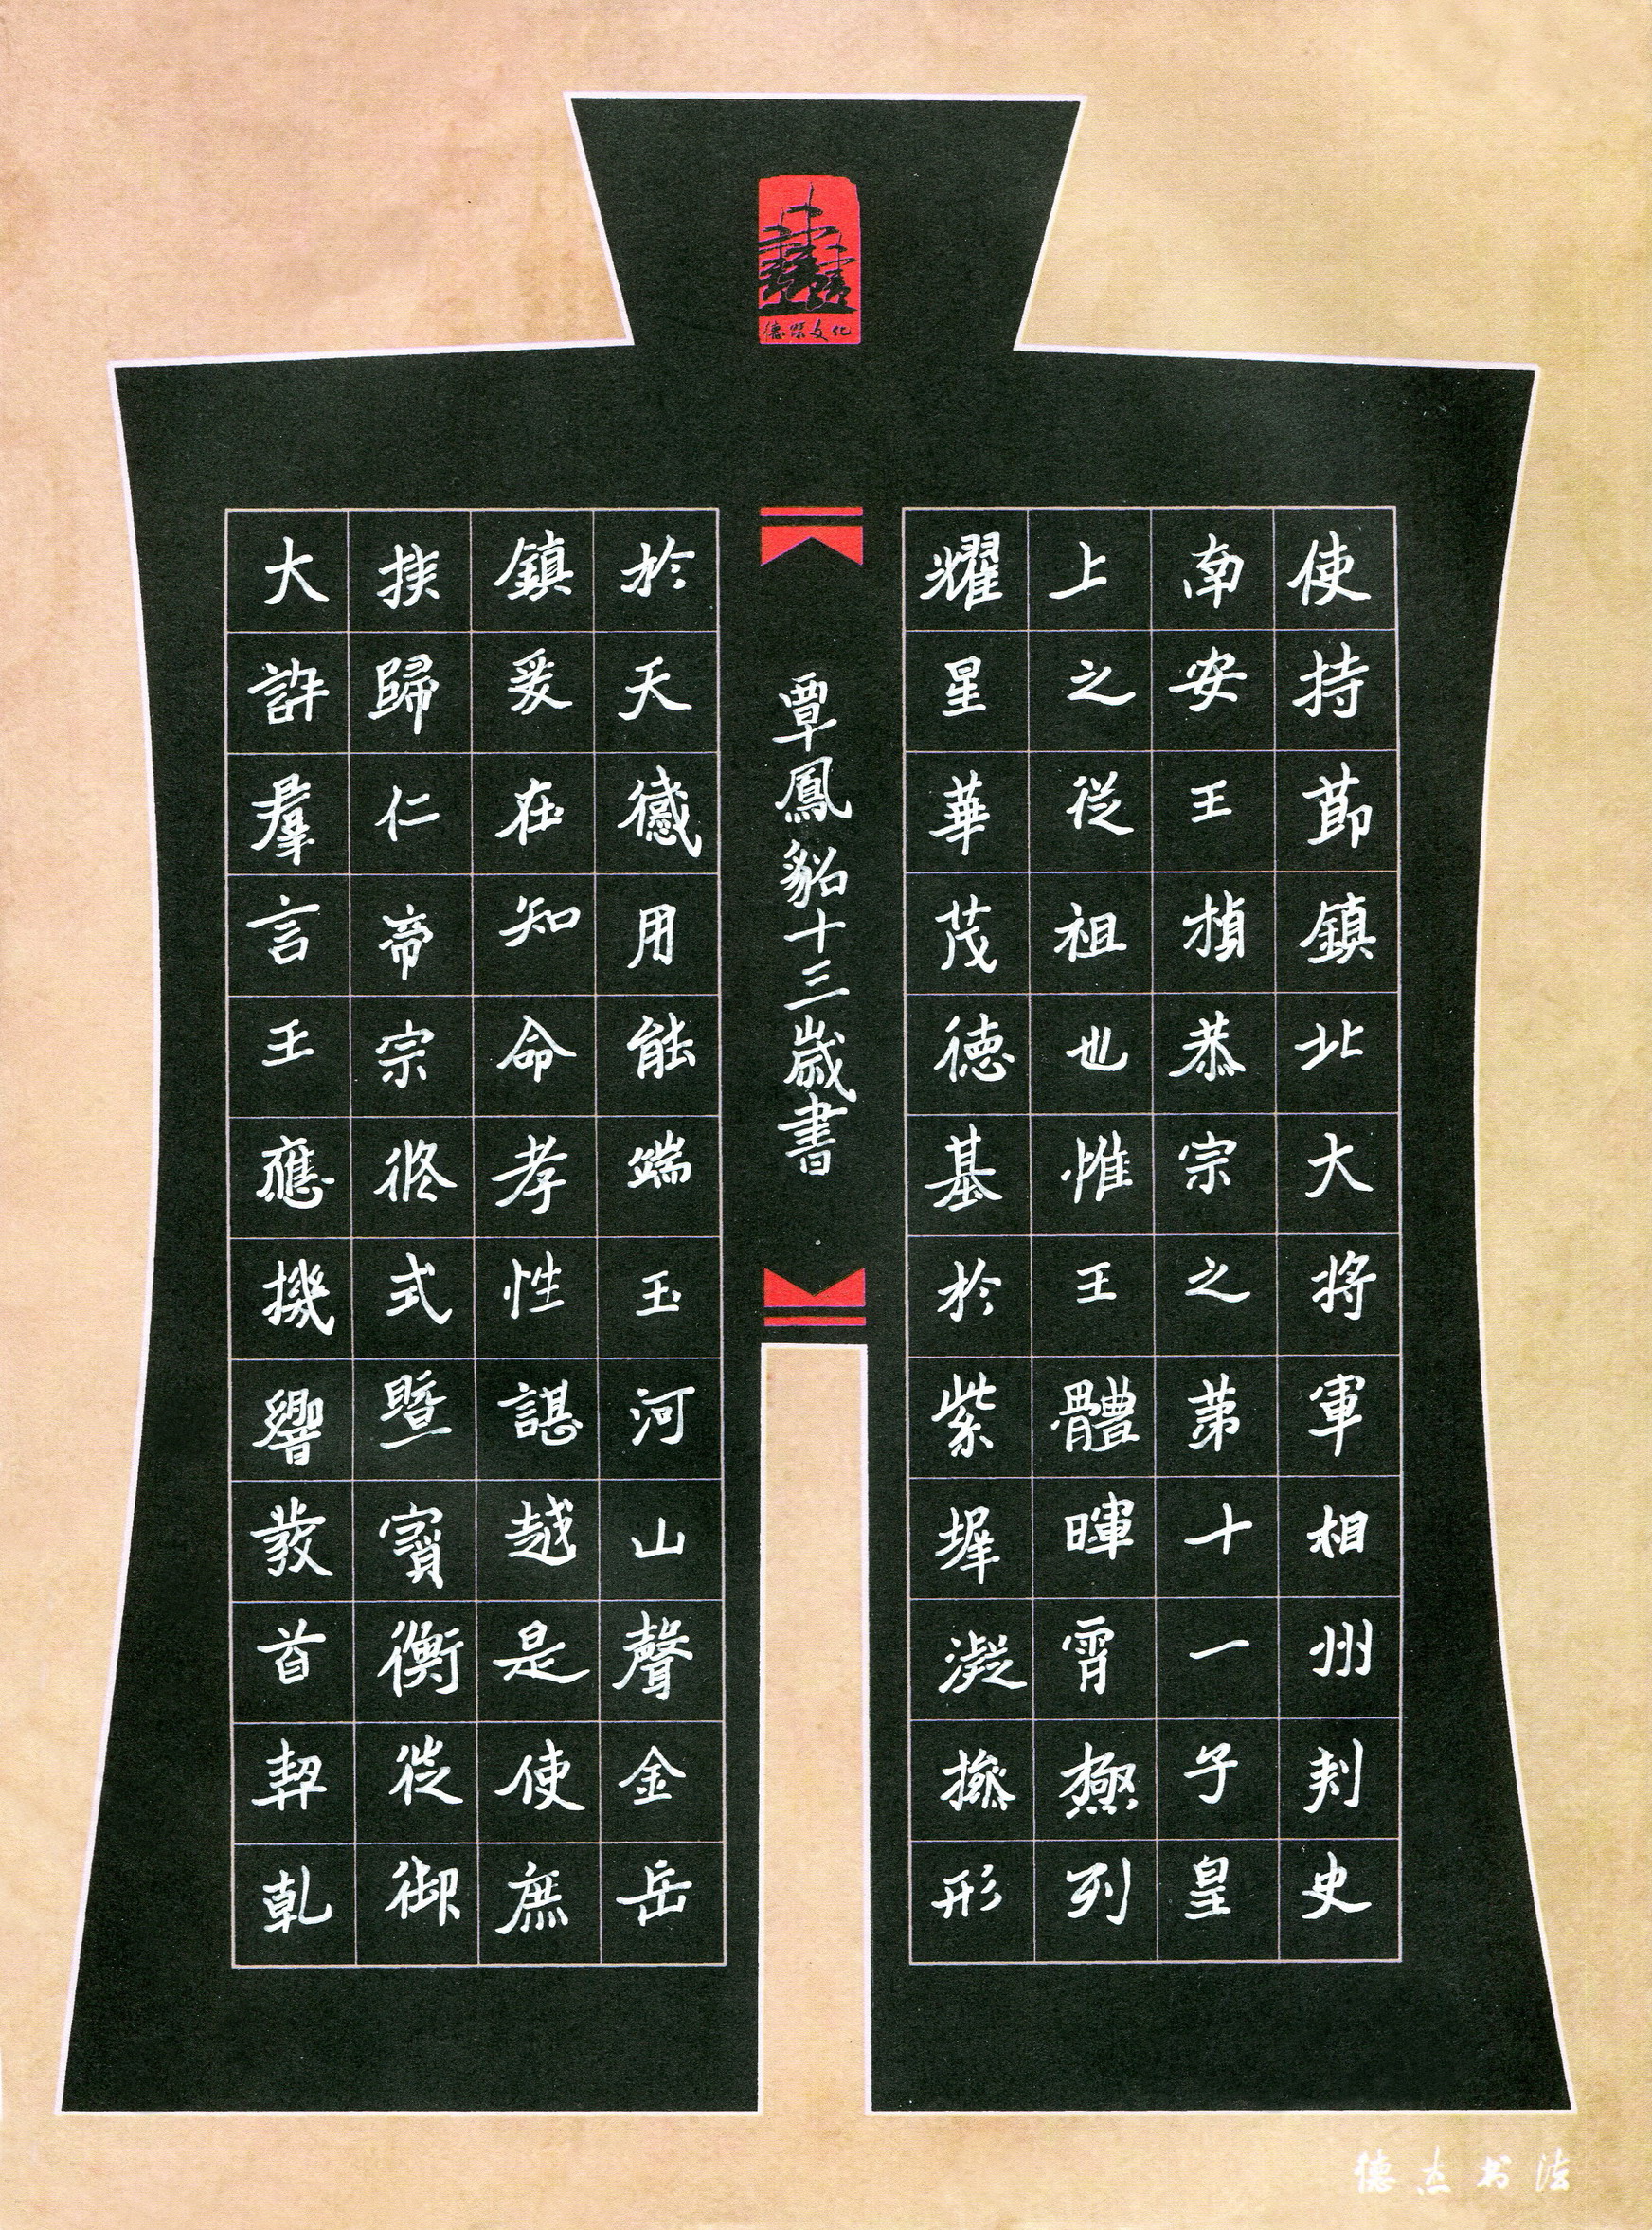 德傑文化
使持節鎮北大将軍相州刾史
南安王楨恭宗之苐十一子皇
上之從祖也惟王體暉霄極列
耀星華茂德基於紫墀凝操形
覃鳳貂十三歲書
於天感用能端玉河山聲金岳
鎮爰在知命孝性諶越是使庶
族歸仁帝宗攸式暨寶衡徙御
大訊羣言王應機響發首契乾
德杰书法